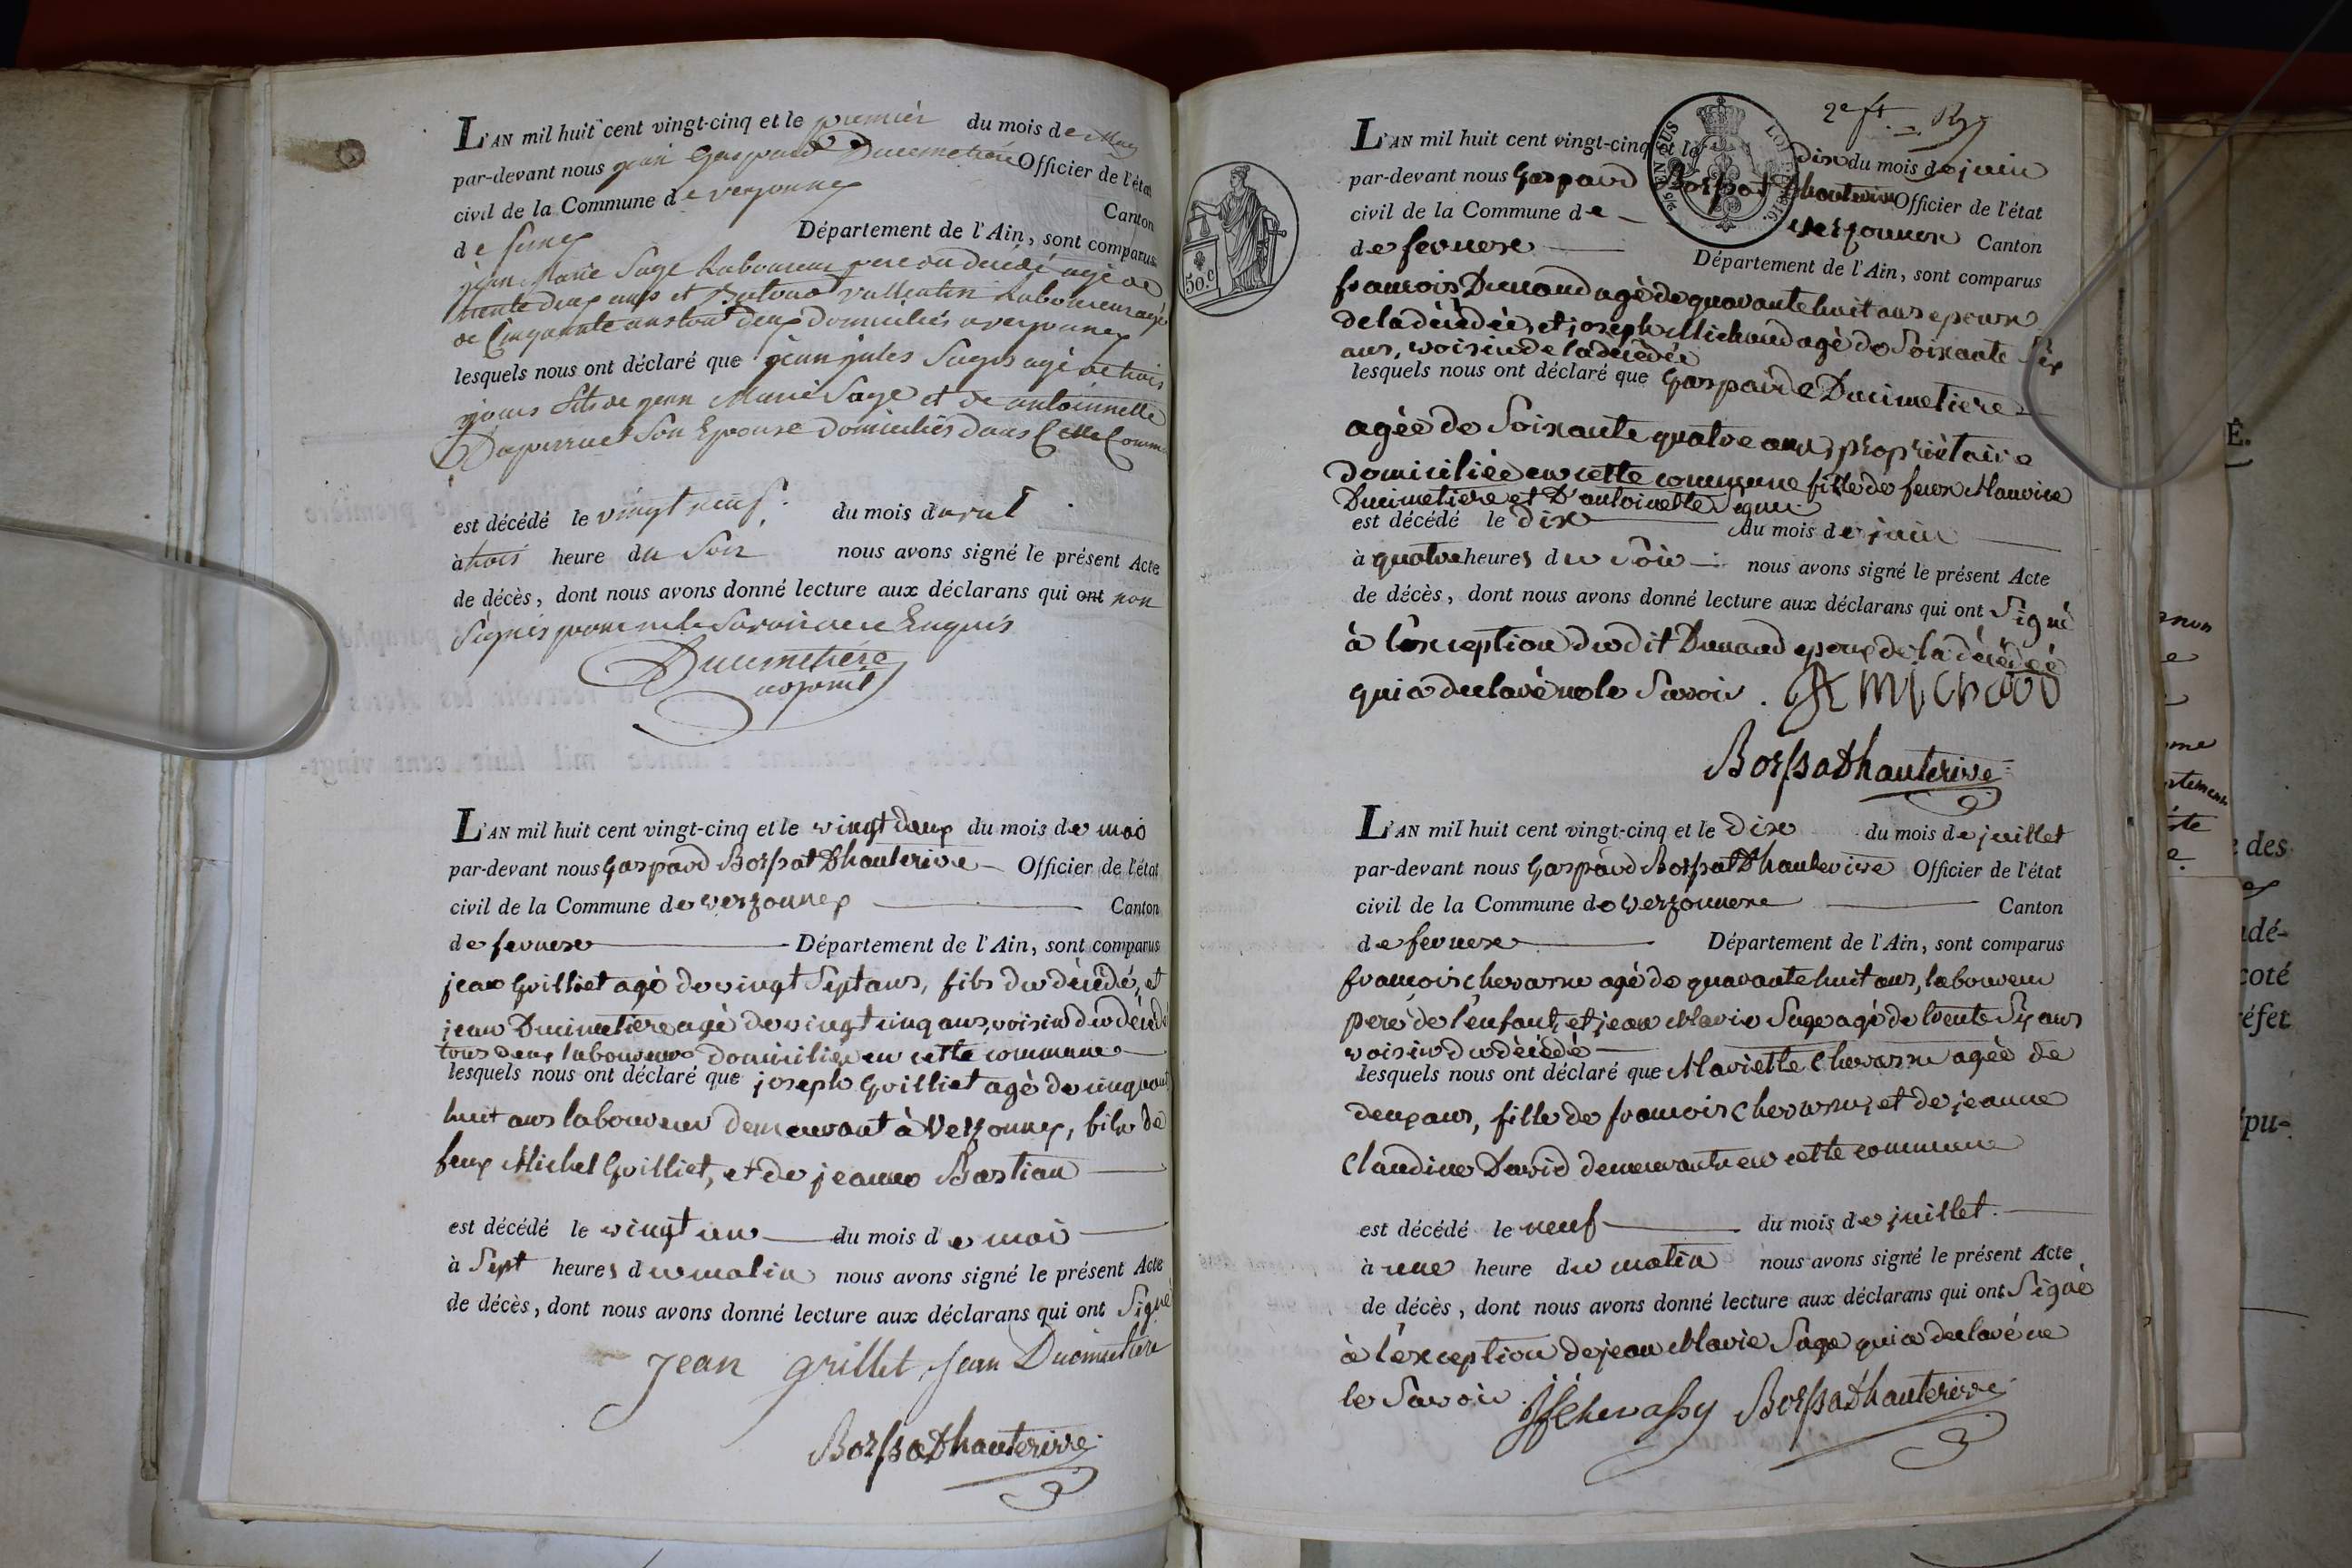 L'AN mil huit cent vingt-cinq et le premier du mois de May
par-devant nous jean Gaspard Ducimetiere Officier de l'état
civil de la Commune de verjonnex
Canton
de fernex Département de l'Ain, sont comparus
jean Marie Sage Laboureur pere du decédé agé de
trente deux ans et vullientin Laboureur agé
de Cinquante ans tout deux domiciliés a verjonnex
lesquels nous ont déclaré que jean jules Sage agé de trois
jours fils de jean Marie Sage et de antoinnette
Duperruet Son Epouse domiciliés dans Cette Comm
est décédé le vingt neuf du mois d avril
à trois heure du Soir nous avons signé le présent Acte
de décès, dont nous avons donné lecture aux déclarans qui ont non
Signés pour ne le Savoir de ce Enquis
Ducimetiere
adjoint
L'AN mil huit cent vingt-cinq et le vingt deux du mois de mai
par-devant nous Gaspard Borssat Dhauterive Officier de l'état
civil de la Commune de verzonnex Canton
de fernex Département de l'Ain, sont comparus
jean Grilliet agé de vingt Sept ans, fils du décédé, et
jean Ducimetiere agé de vingt cinq ans, voisin du décédé
tous deux laboureurs domiciliés en cette commune
lesquels nous ont déclaré que joseph Grilliet agé de cinquant
huit ans laboureur demeurant à Verzonnex, fils de
feux Michel Grilliet, et de jeanne Bastian
est décédé le vingt un du mois de mai
à Sept heures du matin nous avons signé le présent Acte
de décès, dont nous avons donné lecture aux déclarans qui ont Signé
Jean grillet Jean Ducimetiere
Borssat Dhauterive
2e ft
L'AN mil huit cent vingt-cinq et le dix du mois de juin
par-devant nous Gaspard Borssat Dhauterive Officier de l'état
civil de la Commune de verzonnex Canton
de fernex Département de l'Ain, sont comparus
50.c
francois Dunand agé de quarante huit ans epoux
de la décédée, et joseph Michaud agé de Soixante Six
ans, voisin de la décédée
lesquels nous ont déclaré que Gasparde Ducimetiere
agée de Soixante quatre ans, propriétaire
domiciliée en cette commune fille de feux Maurice
Ducimetiere et D'antoinette
est décédé le dix du mois de juin
à quatre heures du Soir nous avons signé le présent Acte
de décès, dont nous avons donné lecture aux déclarans qui ont Signé
à l'exception du dit Dunand epoux de la décédée
qui a déclaré ne le Savoir. MICHAUD
Borssat Dhauterive
L'AN mil huit cent vingt-cinq et le Dix du mois de juillet
par-devant nous Gaspard Borssat Dhauterive Officier de l'état
civil de la Commune de Verzonnex Canton
de fernex Département de l'Ain, sont comparus
francois Chevassu agé de quarante huit ans, laboureur
pere de l'enfant, et jean Marie Sage agé de trente Six ans
voisin du décédé
lesquels nous ont déclaré que Mariette Chevassu agée de
deux ans, fille de francois Chevassu, et de jeanne
Claudine David demeurants en cette commune
est décédé le neuf du mois de juillet.
à une heure du matin nous avons signé le présent Acte
de décès, dont nous avons donné lecture aux déclarans qui ont Signé
à l'exception de jean Marie Sage qui a déclaré ne
le Savoir. Borssat Dhauterive